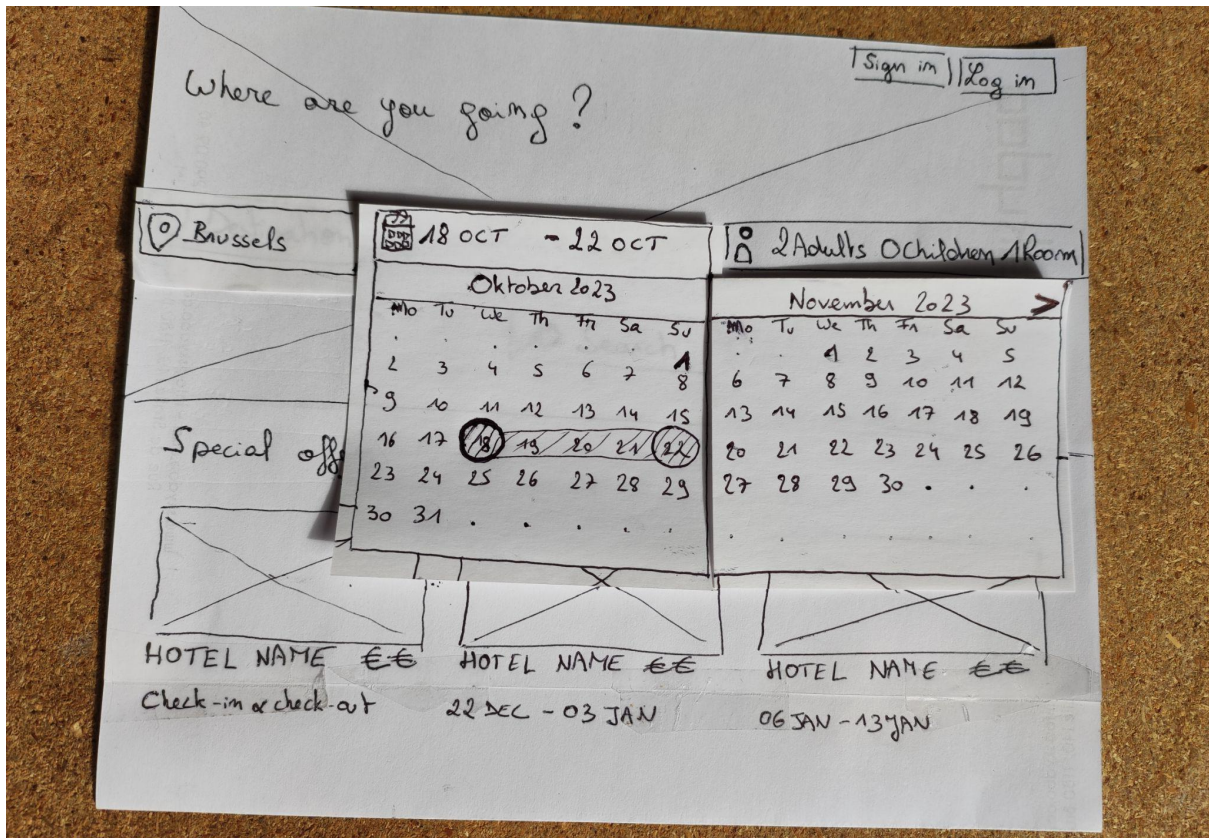 Sign in
Log in
Where are you going?
Brussels
18 OCT - 22 OCT
2 Adults 0 Children 1 Room
Oktober 2023
Mo Tu We Th Fr Sa Su
1
2 3 4 5 6 7 8
9 10 11 12 13 14 15
16 17 18 19 20 21 22
23 24 25 26 27 28 29
30 31
November 2023 >
Mo Tu We Th Fr Sa Su
1 2 3 4 5
6 7 8 9 10 11 12
13 14 15 16 17 18 19
20 21 22 23 24 25 26
27 28 29 30
Special off
HOTEL NAME €€
Check-in & check-out
HOTEL NAME €€
22 DEC - 03 JAN
HOTEL NAME €€
06 JAN - 13 JAN